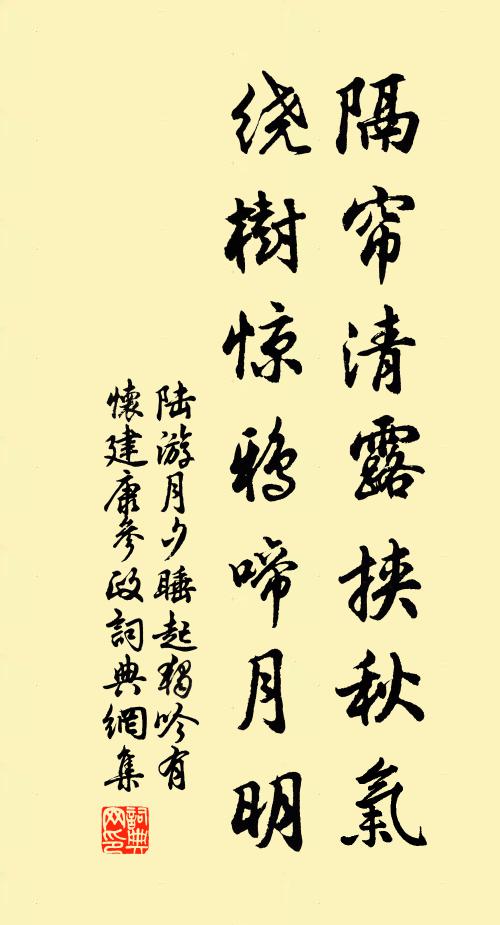 隔帘清露挟秋氣
绕樹惊鸦啼月明
陆游月夕睡起独吟有
懷建康参政詞典網集
詞典
网印